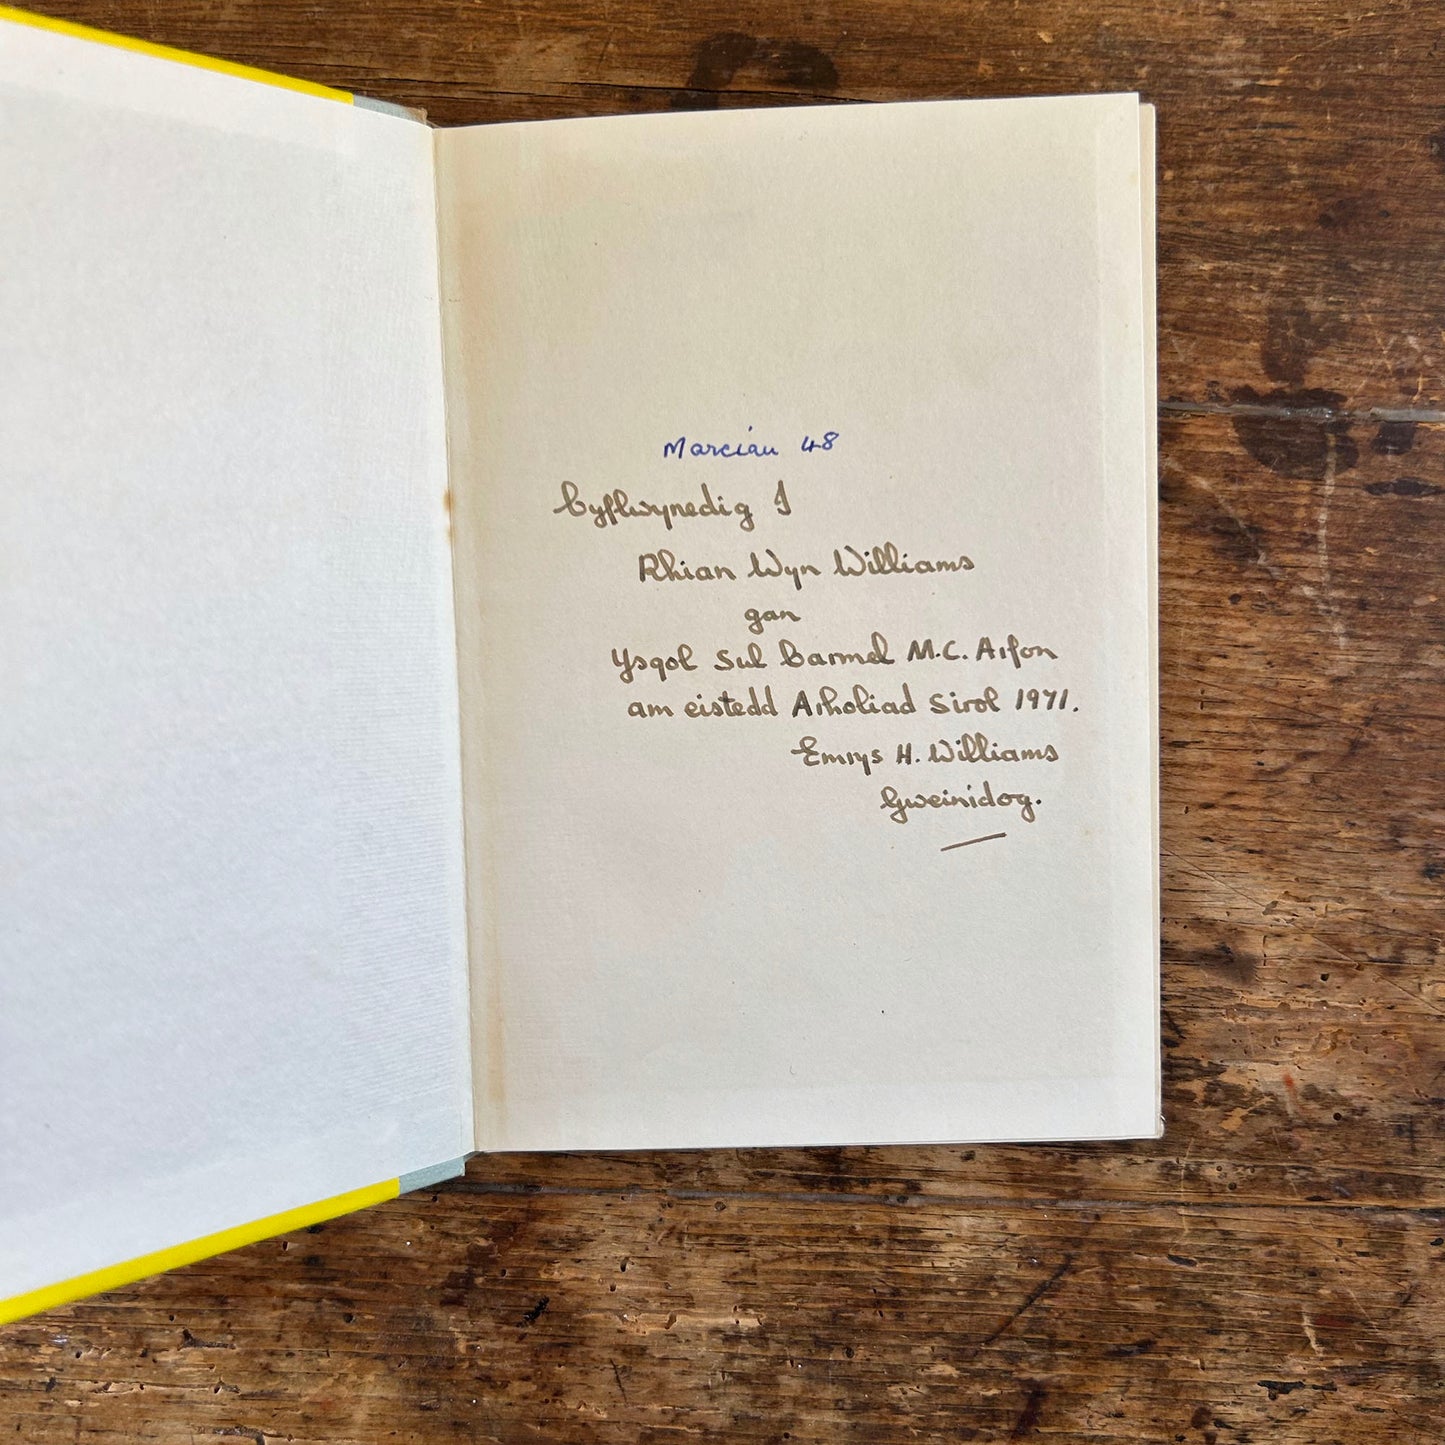 Marciau 48
Cyflwynedig I
Rhian Wyn Williams
gan
Ysgol Sul Carmel M.C. Arfon
am eistedd Arholiad Sirol 1971.
Emrys H. Williams
Gweinidog.